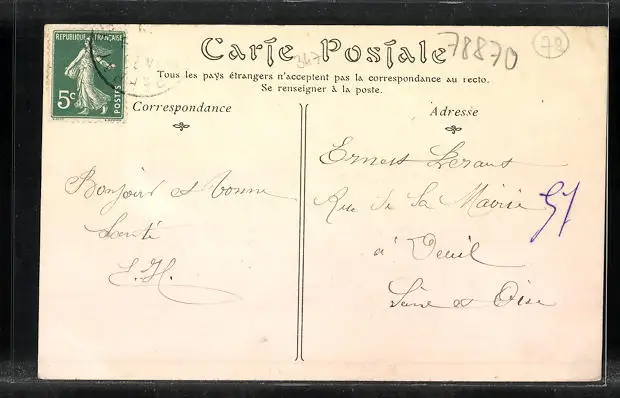 REPUBLIQUE FRANÇAISE
5c
POSTES
Carte Postale
347
78870
78
Tous les pays étrangers n'acceptent pas la correspondance au recto.
Se renseigner à la poste.
Correspondance
Bonjour et bonne
Santé
E.H.
Adresse
Ernest
Rue de la Mairie
57
à
Seine et Oise